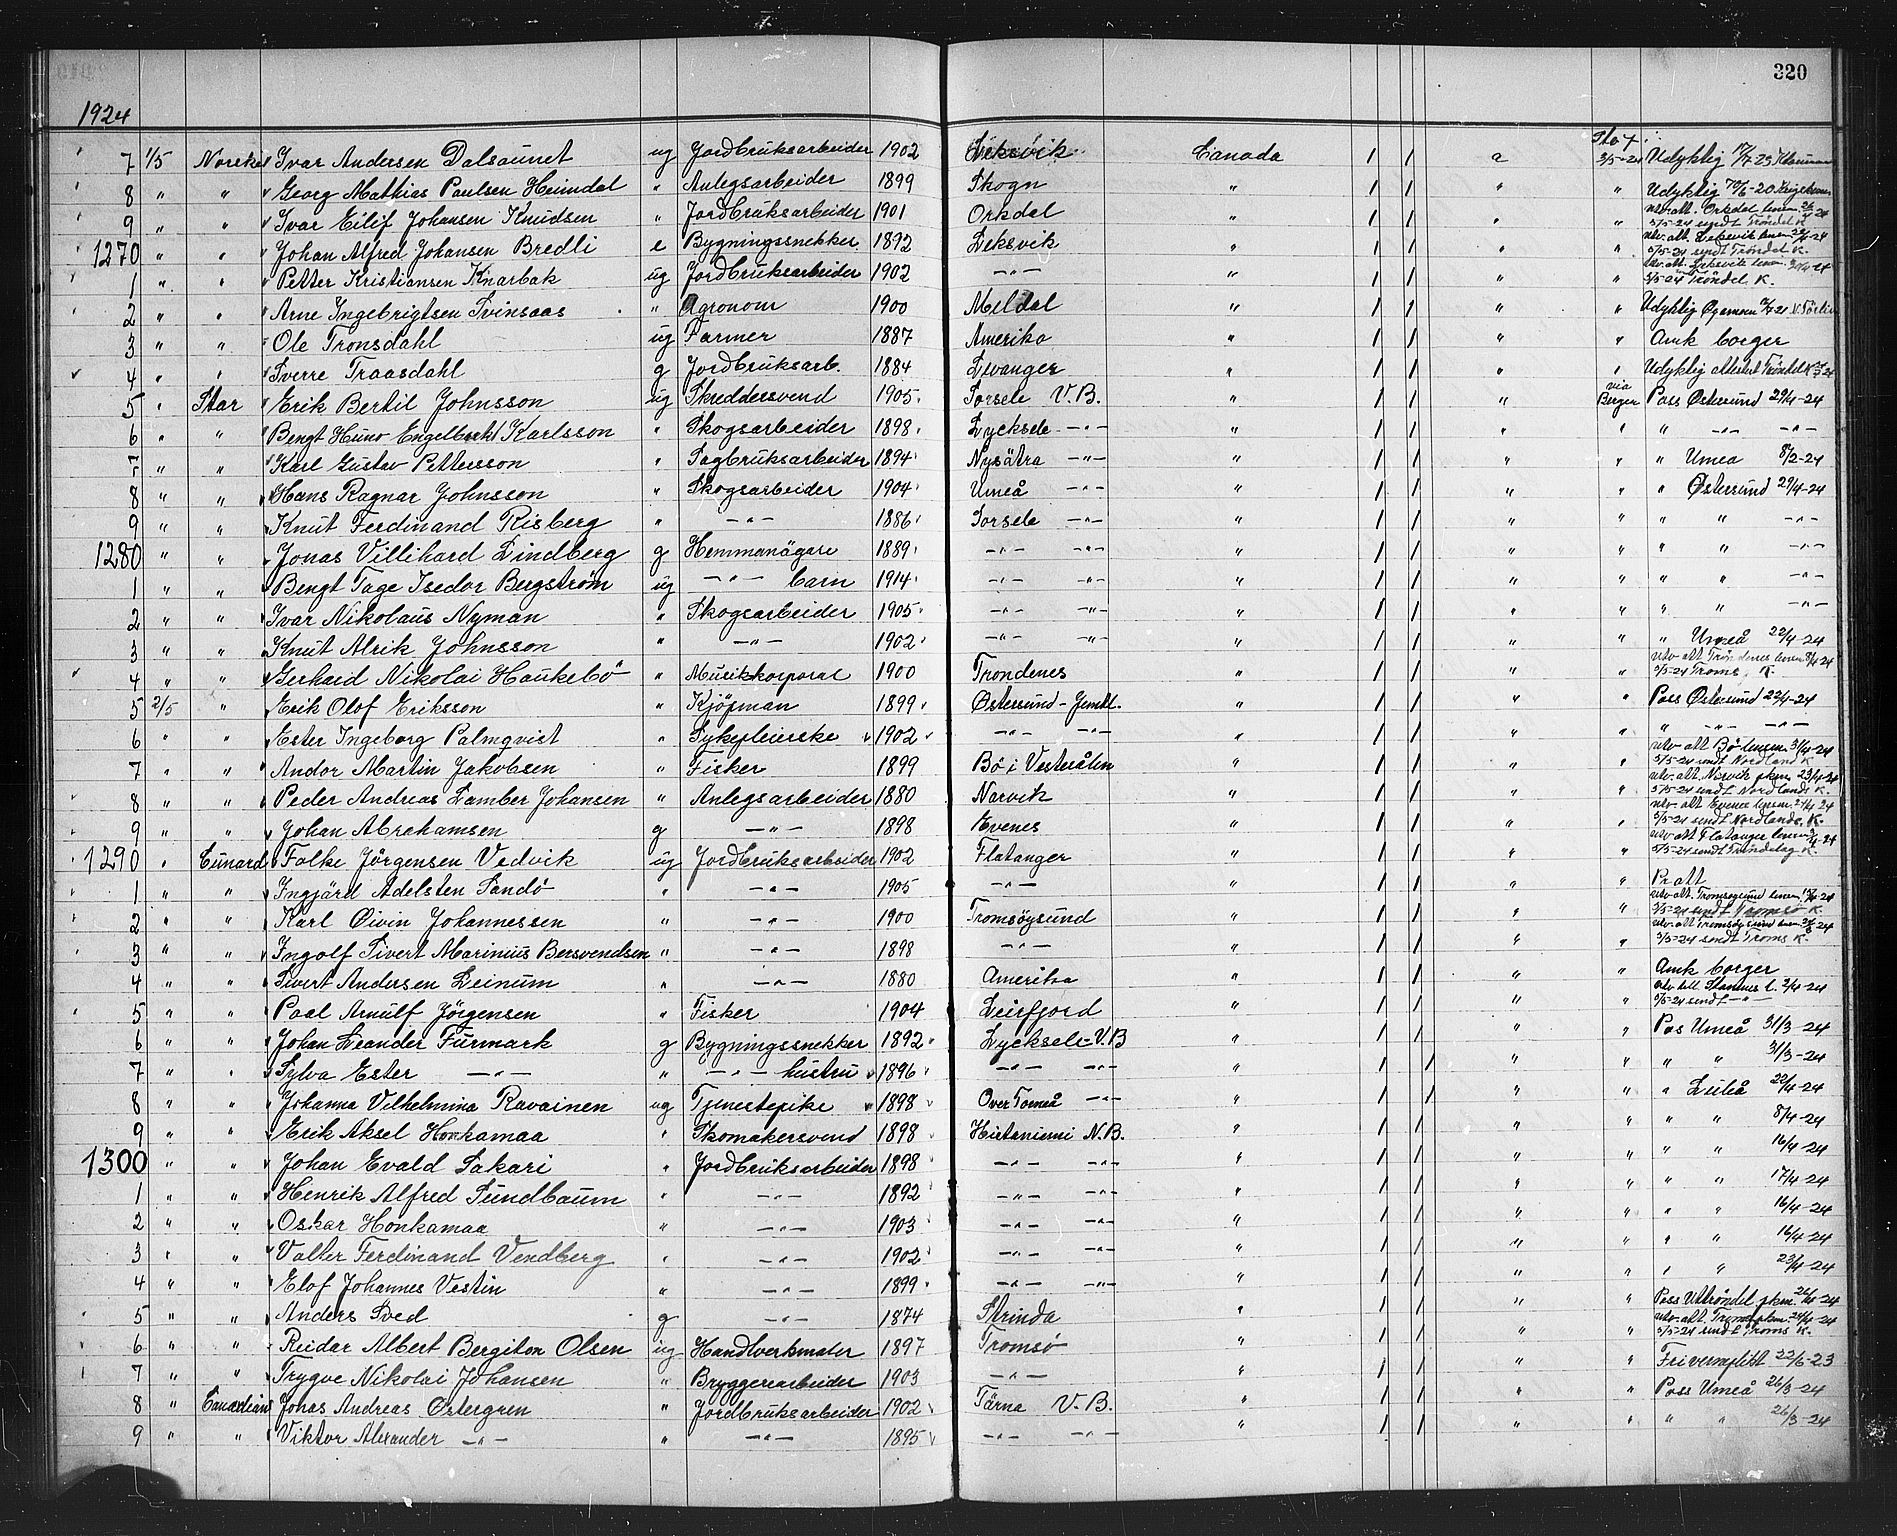 320
1924
Sto 7.
7 1/5 Norske Ivar Andersen Dalsaunet ug Jordbruksarbeider 1902 Leksvik Canada 1 1 a 3/5-24 Udyktig
8 " " Georg Mathias Paulsen Heimdal " Anlegsarbeider 1899 Skogn " 1 1 " " Udyktig
9 " " Ivar Eilif Johansen Knudsen " Jordbruksarbeider 1901 Orkdal " 1 1 " " utv. att. Orkdal 5/5-24 sendt Tröndel K
1270 " " Johan Alfred Johansen Bredli e Bygningssnekker 1892 Leksvik " 1 1 " " utv. att. Leksvik 5/5-24 sendt Tröndel K.
1 " " Petter Kristiansen Knarbak ug Jordbruksarbeider 1902 -"- " 1 1 " " utv. att. Leksvik 5/5-24 Tröndel K.
2 " " Arne Ingebrigtsen Svinsaas " Agronom 1900 Meldal " 1 1 " " Udyktig
3 " " Ole Tronsdahl ug Farmer 1887 Amerika " 1 1 " " Amk borger
4 " " Sverre Traasdahl g Jordbruksarb. 1884 Levanger " 1 1 " " Udyktig attest Tröndel K
5 " Star Erik Bertil Johnsson ug Skreddersvend 1905 Sorsele V.B. " 1 1 " via Berger Pass Østersund 29/4-24
6 " " Bengt Huno Engelbrekt Karlsson " Skogsarbeider 1898 Lycksele -"- " 1 1 " " " -"- -"-
7 " " Karl Gustav Pettersson " Sagbruksarbeider 1894 Nysätra -"- " 1 1 " " " Umea 8/2-24
8 " " Hans Ragnar Johnsson " Skogsarbeider 1904 Umeå -"- " 1 1 " " " Østersund 29/4-24
9 " " Knut Ferdinand Risberg " -"- 1886 Sorsele -"- " 1 1 " " " " -"-
1280 " " Jonas Villihard Lindberg g Hemmanägare 1889 -"- -"- " 1 1 " " " " -"-
1 " " Bengt Tage Isedor Bergström ug -"- barn 1914 -"- -"- " 1 1 " " " " -"-
2 " " Ivar Nikolaus Nyman " Skogsarbeider 1905 -"- -"- " 1 1 " " " " -"-
3 " " Knut Alrik Johnsson " -"- 1902 -"- -"- " 1 1 " " " Umeå 22/4-24
4 " " Gerhard Nikolai Haukebö " Musikkorporal 1900 Trondenes " 1 1 " " utv att Trondenes 5/5-24 Troms. K.
5 2/5 " Erik Olof Eriksson " Kjöpman 1899 Østersund-Jemtl. " 1 1 " " Pass Østersund 22/4-24
6 " " Ester Ingeborg Palmqvist " Sykepleierske 1902 -"- -"- " 1 1 " " " -"- -"-
7 " " Andor Martin Jakobsen " Fisker 1899 Bö i Vesterålen " 1 1 " " utv att Bö 5/5-24 sendt Nordland K
8 " " Peder Andreas Lamber Johansen " Anlegsarbeider 1880 Narvik " 1 1 " " utv. att. Narvik pkm. 23/4-24 5/5-24 sendt Nordlands K.
9 " " Johan Abrahamsen g -"- 1898 Evenes " 1 1 " " utv. att Evenes 5/5-24 sendt Nordlands. K.
1290 " Cunard Folke Jörgensen Vedvik ug Jordbruksarbeider 1902 Flatanger " 1 1 " " utv att Flatanger 5/5-24 sendt Tröndelag K.
1 " " Ingjärd Adelsten Sandö " -"- 1905 -"- " 1 1 " " Pr att
2 " " Karl Öivin Johannessen " -"- 1900 Tromsöysund " 1 1 " " utv att. Tromsøysund 5/5-24 sendt Tromsö K.
3 " " Ingolf Sivert Marinius Bersvendsen " -"- 1898 -"- " 1 1 " " utv. att Tromsøysund 5/5-24 sendt Troms K.
4 " " Sivert Andersen Leinum " -"- 1880 Amerika " 1 1 " " Amk borger
5 " " Paal Arnulf Jörgensen " Fisker 1904 Leirfjord " 1 1 " " utv att Stamnes l. 2/4-24 5/5-24 sendt -"-
6 " " Johan Leander Furmark g Bygningssnekker 1892 Lycksele-V.B " 1 1 " " Pas Umeå 31/3-24
7 " " Sylva Ester -"- " -"- hustru 1896 -"- -"- " 1 1 " " " " 31/3-24
8 " " Johanna Vilhelmina Ravainen ug Tjenestepike 1898 Over Torneå -"- " 1 1 " " " Luleå 22/4-24
9 " " Erik Aksel Honkamaa " Skomakersvend 1898 Hietaniemi N.B. " 1 1 " " " " 8/4-24
1300 " " Johan Evald Sakari " Jordbruksarbeider 1898 -"- -"- " 1 1 " " " " 16/4-24
1 " " Henrik Alfred Sundbaum " -"- 1892 -"- -"- " 1 1 " " " " 17/4-24
2 " " Oskar Honkamaa " -"- 1903 -"- -"- " 1 1 " " " " 16/4-24
3 " " Valter Ferdinand Vendberg " -"- 1902 -"- -"- " 1 1 " " " " 16/4-24
4 " " Elof Johannes Vestin " -"- 1899 -"- -"- " 1 1 " " " " 23/4-24
5 " " Anders Sved g -"- 1874 Strinda " 1 1 " " Pass Uttröndel pkm. 26/4-24
6 " " Reidar Albert Bergiton Olsen ug Handverksmaler 1897 Tromsö " 1 1 " " utv. att. Tromsö pkm. 24/4-24 5/5-24 sendt Troms K.
7 " " Trygve Nikolai Johansen " Bryggerarbeider 1903 -"- " 1 1 " " 22/6-23
8 " Canadian Jonas Andreas Østergren " Jordbruksarbeider 1902 Tärna V.B. " 1 1 " " Pass Umeå 26/3-24
9 " " Viktor Alexander -"- " -"- 1895 -"- -"- " 1 1 " " " " 26/3-24